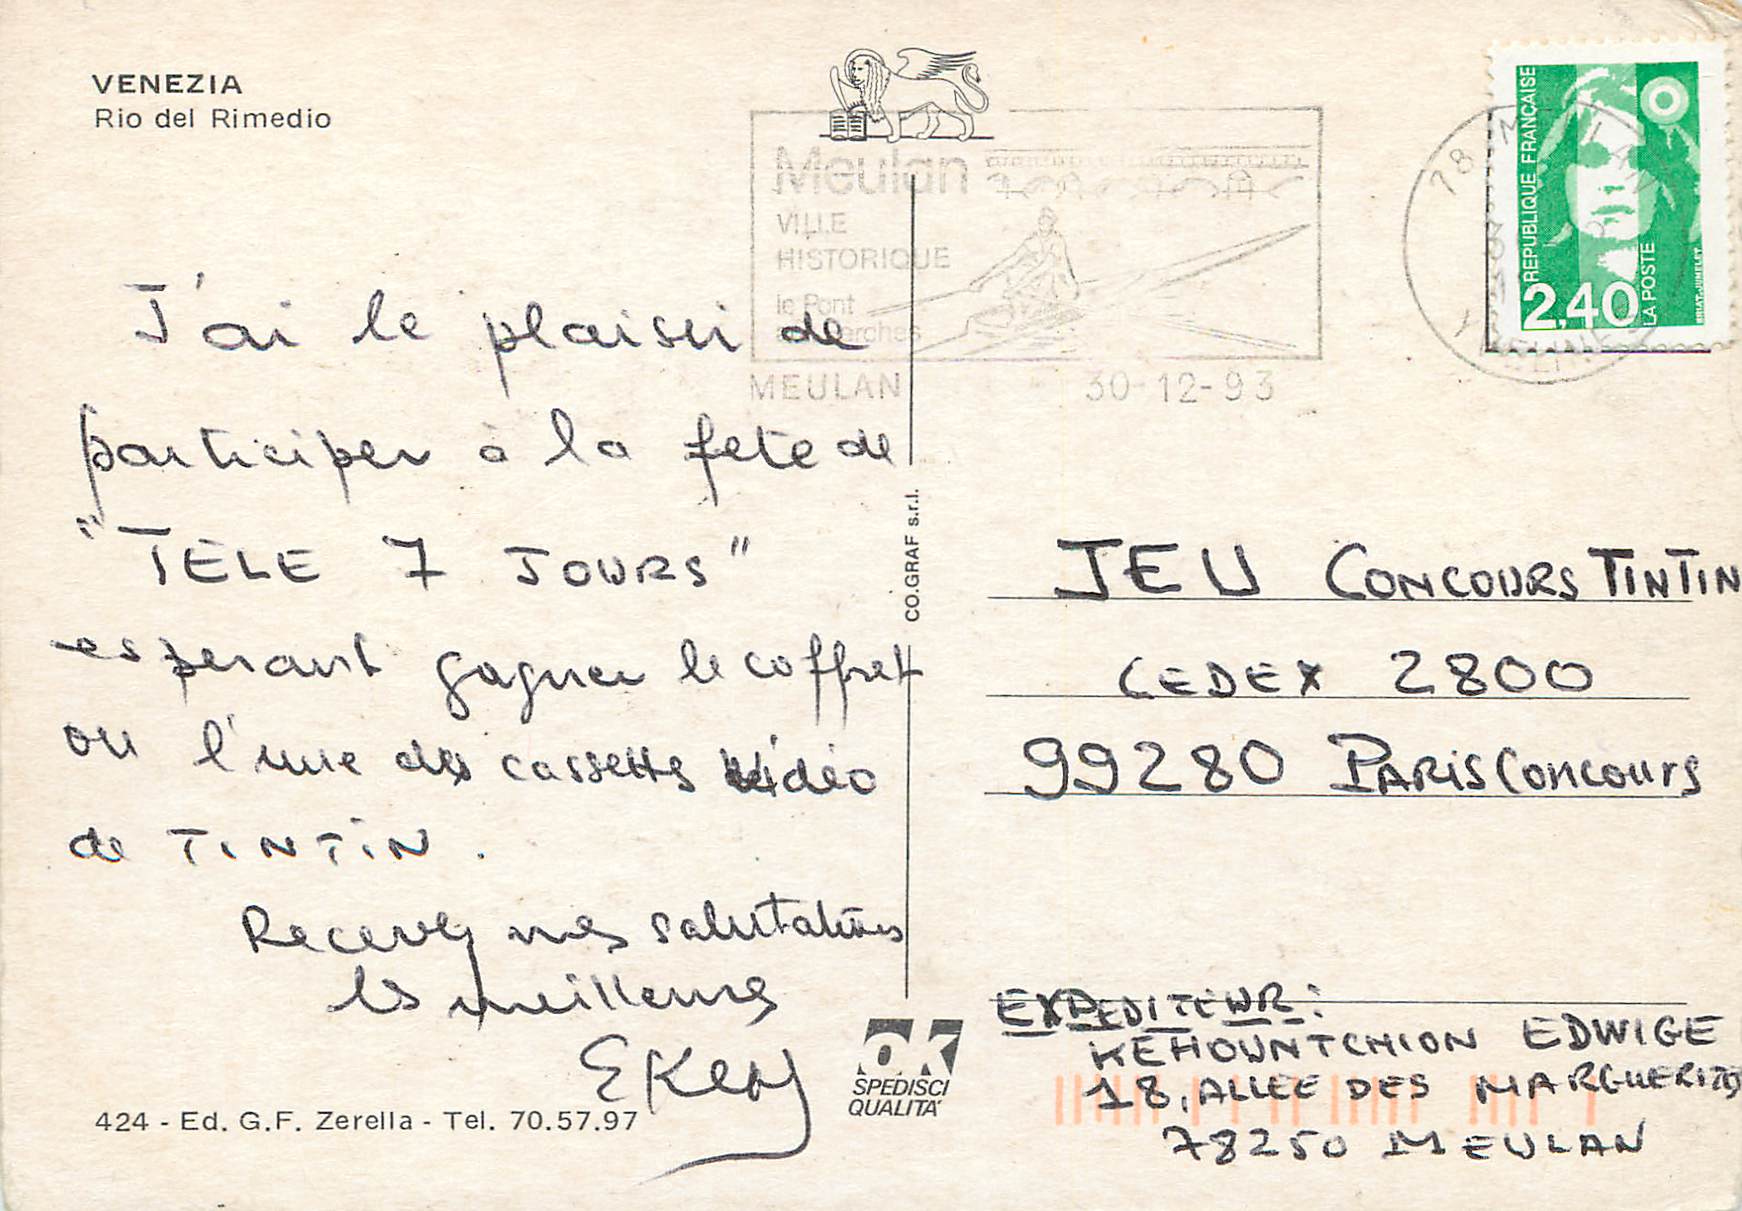 VENEZIA
Rio del Rimedio
Meulan
VILLE
HISTORIQUE
le Pont
MEULAN
30-12-93
REPUBLIQUE FRANÇAISE
2,40
LA POSTE
J'ai le plaisir de
participer à la fete de
"TELE 7 JOURS"
esperant gagner le coffret
ou l'une des cassettes vidéo
de TINTIN.
Recevez mes salutations
les meilleures
EKey
CO.GRAF s.r.l.
JEU CONCOURS TINTIN
CEDEX 2800
99280 PARIS CONCOURS
EXPEDITEUR:
KEHOUNTCHION EDWIGE
18, ALLEE DES MARGUERITES
78250 MEULAN
OK
SPEDISCI
QUALITA'
424 - Ed. G.F. Zerella - Tel. 70.57.97